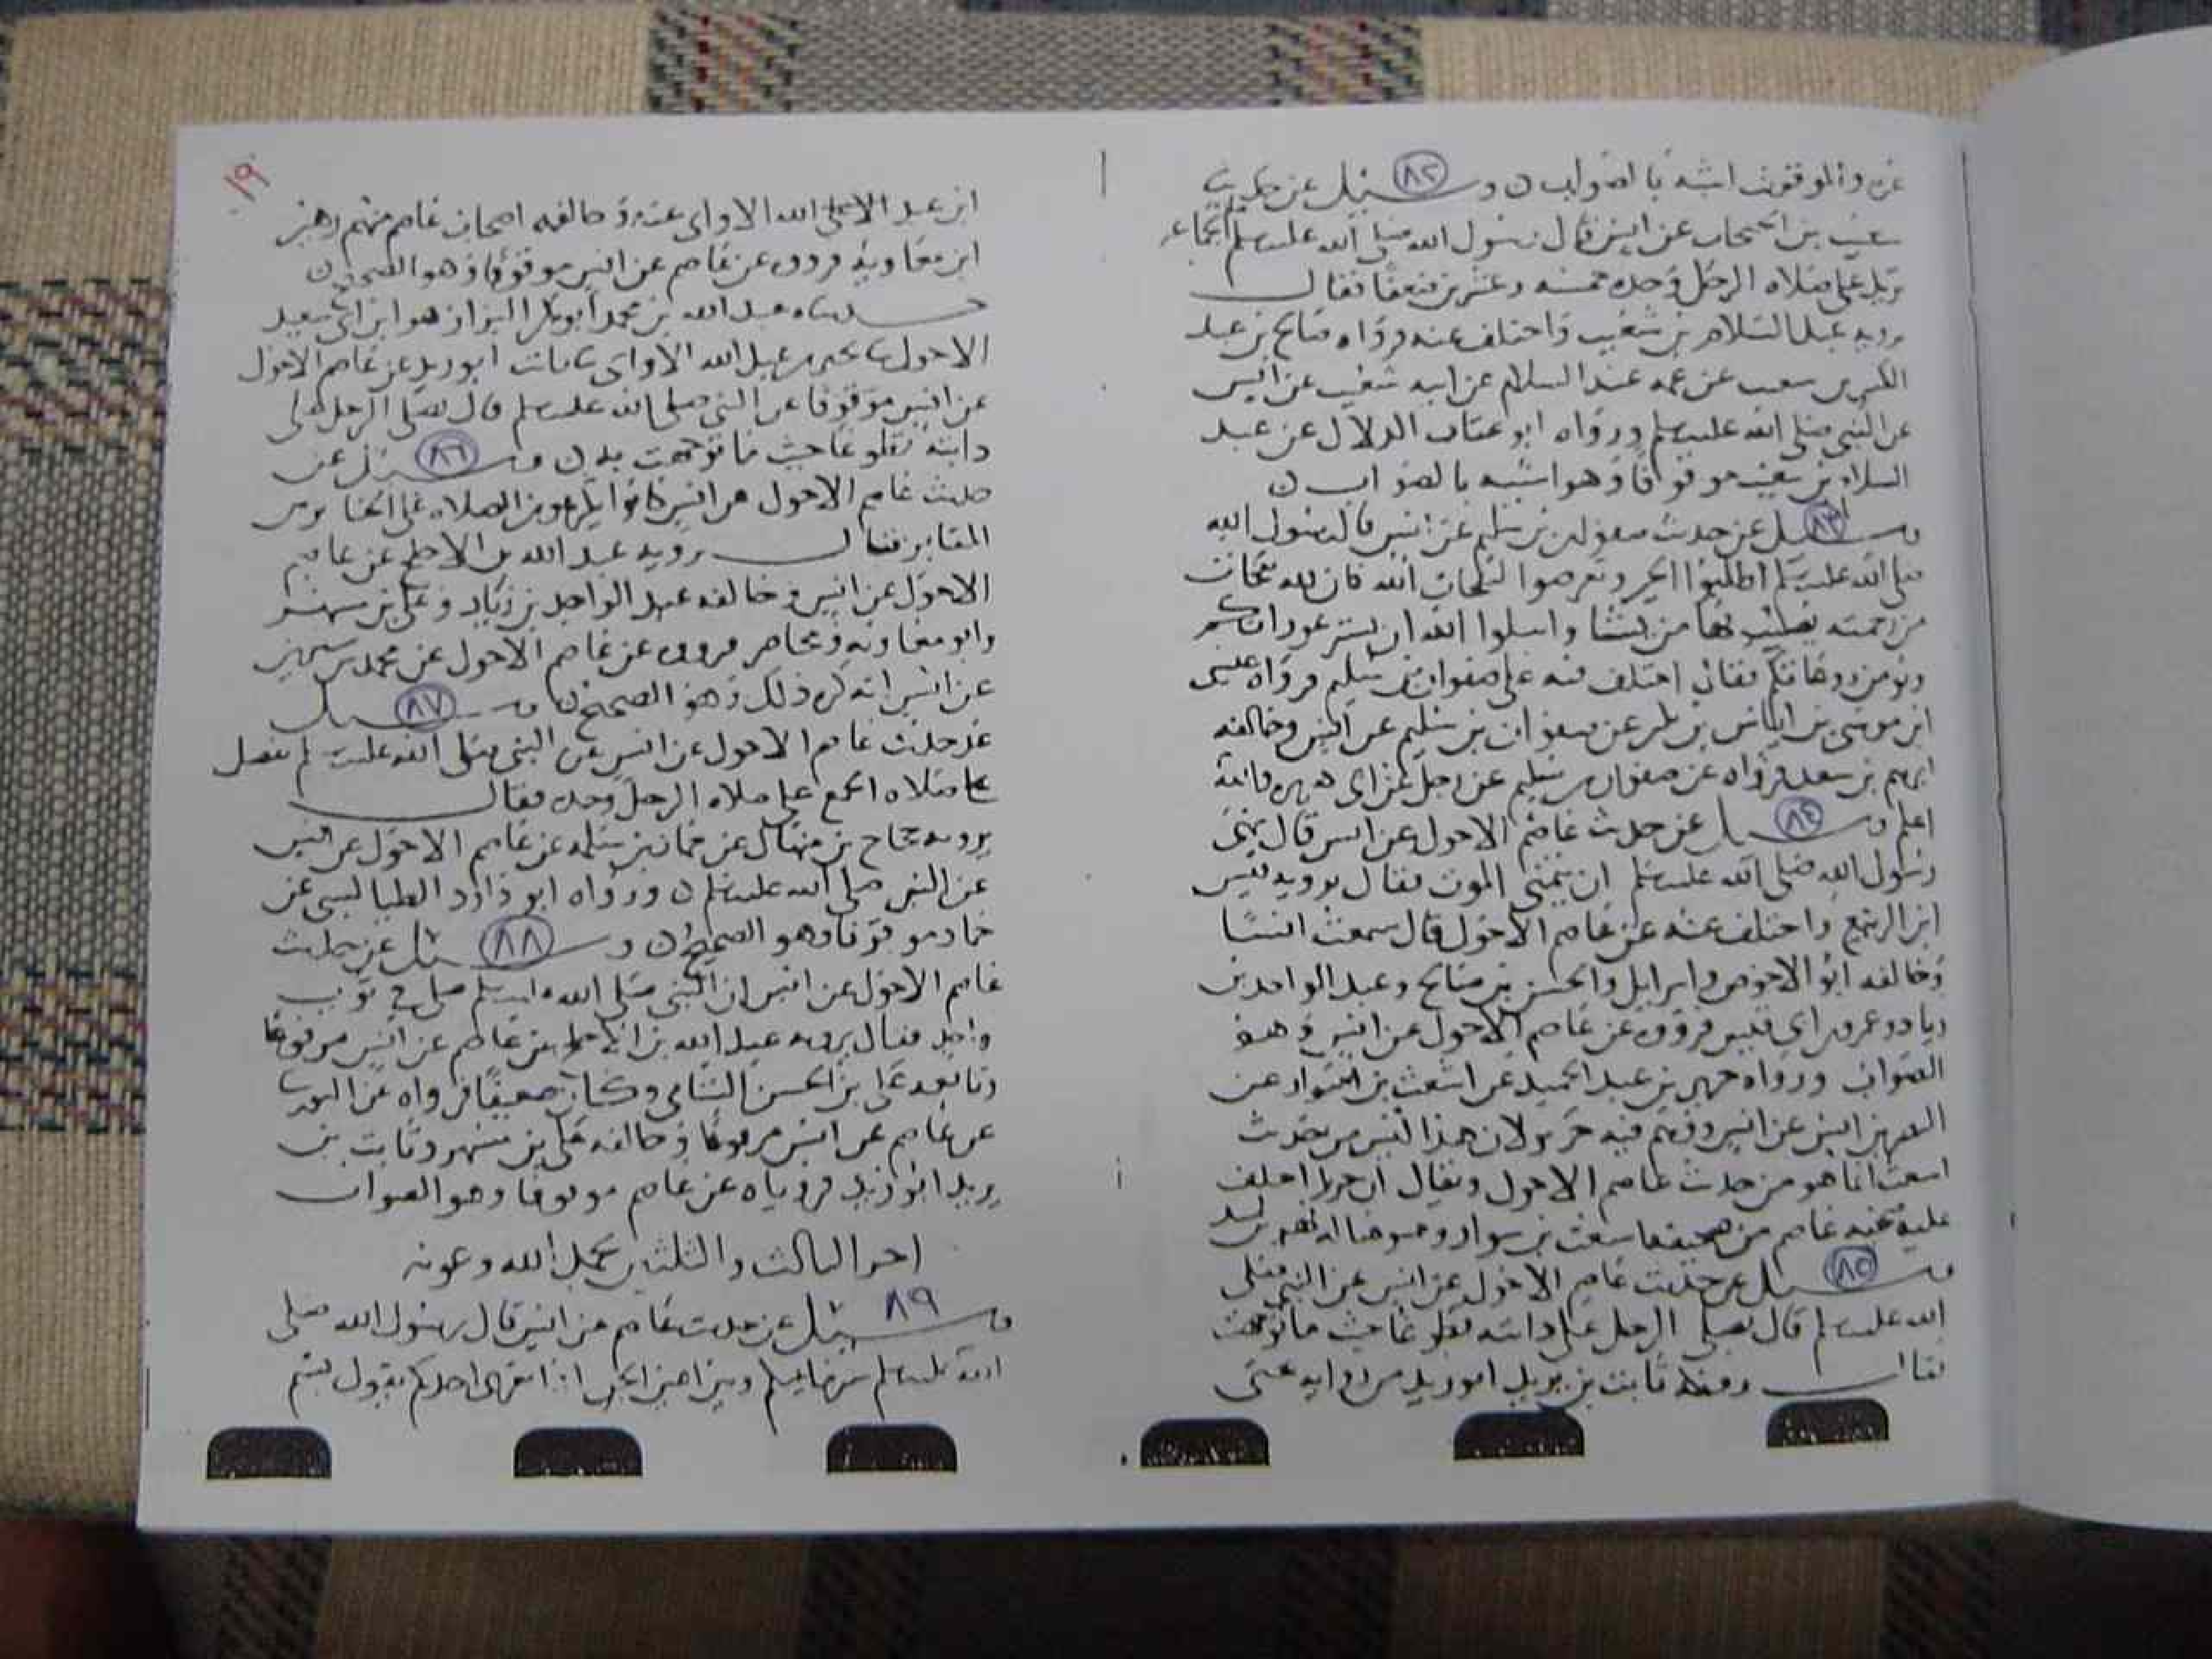 عنه والموقوف اشبه بالصواب ن وسئل ٨٢ عن حديث
شعيب بن الحبحاب عن انس قال رسول الله صلى الله عليه وسلم الجماعة
تزيد على صلاة الرجل وحده خمسة وعشرين ضعفا فقال
يرويه عبد السلام بن شعيب واختلف عنه فرواه صالح بن عبد
الكبير بن شعيب عن عمه عبد السلام عن ابيه شعيب عن انس
عن النبي صلى الله عليه وسلم ورواه ابو عتاب الدلال عن عبد
السلام بن شعيب موقوفا وهو اشبه بالصواب ن
وسئل ٨٣ عن حديث صفوان بن سليم عن انس قال رسول الله
صلى الله عليه وسلم اطلبوا الخير وتعرضوا لنفحات الله فان لله نفحات
من رحمته يصيب بها من يشا واسلوا الله ان يستر عوراتكم
ويومن روعاتكم فقال اختلف فيه على صفوان بن سليم فرواه عيسى
ابن موسى بن اياس بن بكر عن صفوان بن سليم عن انس وخالفه
ابرهيم بن سعد فرواه عن صفوان بن سليم عن رجل عن ابي هريرة والله
اعلم وسئل ٨٤ عن حديث عاصم الاحول عن انس قال نهى
رسول الله صلى الله عليه وسلم ان يتمنى الموت فقال يرويه قيس
ابن الربيع واختلف عنه عن عاصم الاحول قال سمعت انسا
وخالفه ابو الاحوص واسرايل والحسن بن صالح وعبد الواحد بن
زياد وعمرو بن ابي قيس فرووه عن عاصم الاحول عن انس وهو
الصواب ورواه جرير بن عبد الحميد عن اشعث بن سوار عن
النضر بن انس عن انس ووهم فيه جرير لان هذا ليس من حديث
اشعث انما هو من حديث عاصم الاحول ويقال ان جريرا اختلف
عليه صحيفة عاصم من صحيفة اشعث بن سوار
وسئل ٨٥ عن حديث عاصم الاحول عن انس عن النبي صلى
الله عليه وسلم قال يصلي الرجل على دابته تطوعا حيث ما توجهت
فقال رفعه ثابت بن يزيد ابو زيد من رواية يحيى
١٩
ابن عبد الله الاواني عنه وخالفه اصحاب عاصم منهم زهير
ابن معاوية فرووه عن عاصم عن انس موقوفا وهو الصحيح ن
حدثناه عبد الله بن محمد ابو بكر البزاز هو ابن ابي سعيد
الاحول ثنا يحيى بن عبد الله الاواني ثنا ثابت ابو زيد عن عاصم الاحول
عن انس موقوفا عن النبي صلى الله عليه وسلم قال يصلي الرجل على
دابته تطوعا حيث ما توجهت به ن وسئل ٨٦ عن
حديث عاصم الاحول عن انس كانوا يكرهون الصلاة على الجنايز بين
المقابر فقال يرويه عبد الله بن الاجلح عن عاصم
الاحول عن انس وخالفه عبد الواحد بن زياد وعلي بن مسهر
وابو معاوية ومحاضر فرووه عن عاصم الاحول عن محمد بن سيرين
عن انس انه كره ذلك وهو الصحيح ن وسئل ٨٧
عن حديث عاصم الاحول عن انس عن النبي صلى الله عليه وسلم تفضل
صلاة الجمع على صلاة الرجل وحده فقال
يرويه حجاج بن منهال عن حماد بن سلمة عن عاصم الاحول عن انس
عن النبي صلى الله عليه وسلم ن ورواه ابو داود الطيالسي عن
حماد موقوفا وهو الصحيح ن وسئل ٨٨ عن حديث
عاصم الاحول عن انس ان النبي صلى الله عليه وسلم صلى في ثوب
واحد فقال يرويه عبد الله بن الاجلح عن عاصم عن انس مرفوعا
وتابعه علي بن الحسن الشامي وكان ضعيفا فرواه عن الثوري
عن عاصم عن انس مرفوعا وخالفه علي بن مسهر وثابت بن
يزيد ابو زيد فروياه عن عاصم موقوفا وهو الصواب
اخر الثالث والثلثين بحمد الله وعونه
وسئل ٨٩ عن حديث عاصم عن انس قال رسول الله صلى
الله عليه وسلم بينهما وبين اعين الجن اذا تعرى احدكم يقول بسم